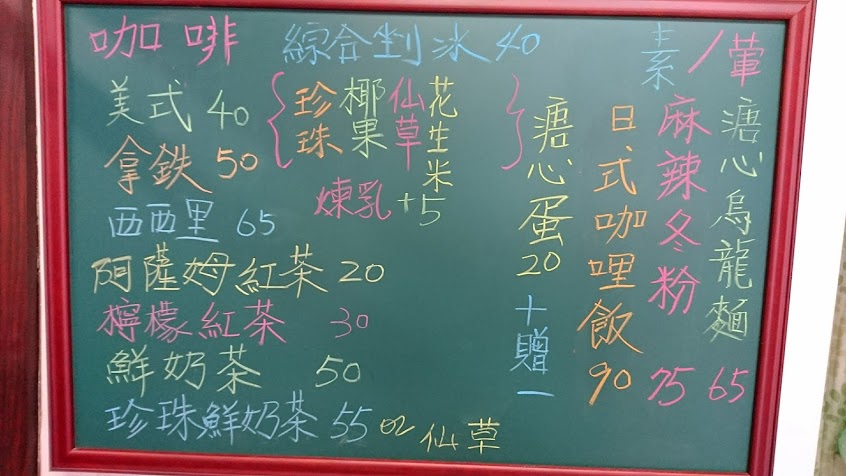 咖啡
美式 40
拿鉄 50
西西里 65
阿薩姆紅茶 20
檸檬紅茶 30
鮮奶茶 50
珍珠鮮奶茶 55 or 仙草
綜合剉冰 40
{珍珠 椰果 仙草 花生米}
煉乳+5
素/葷
溏心烏龍麵 65
麻辣冬粉 75
日式咖哩飯 90
溏心蛋 20
十贈一